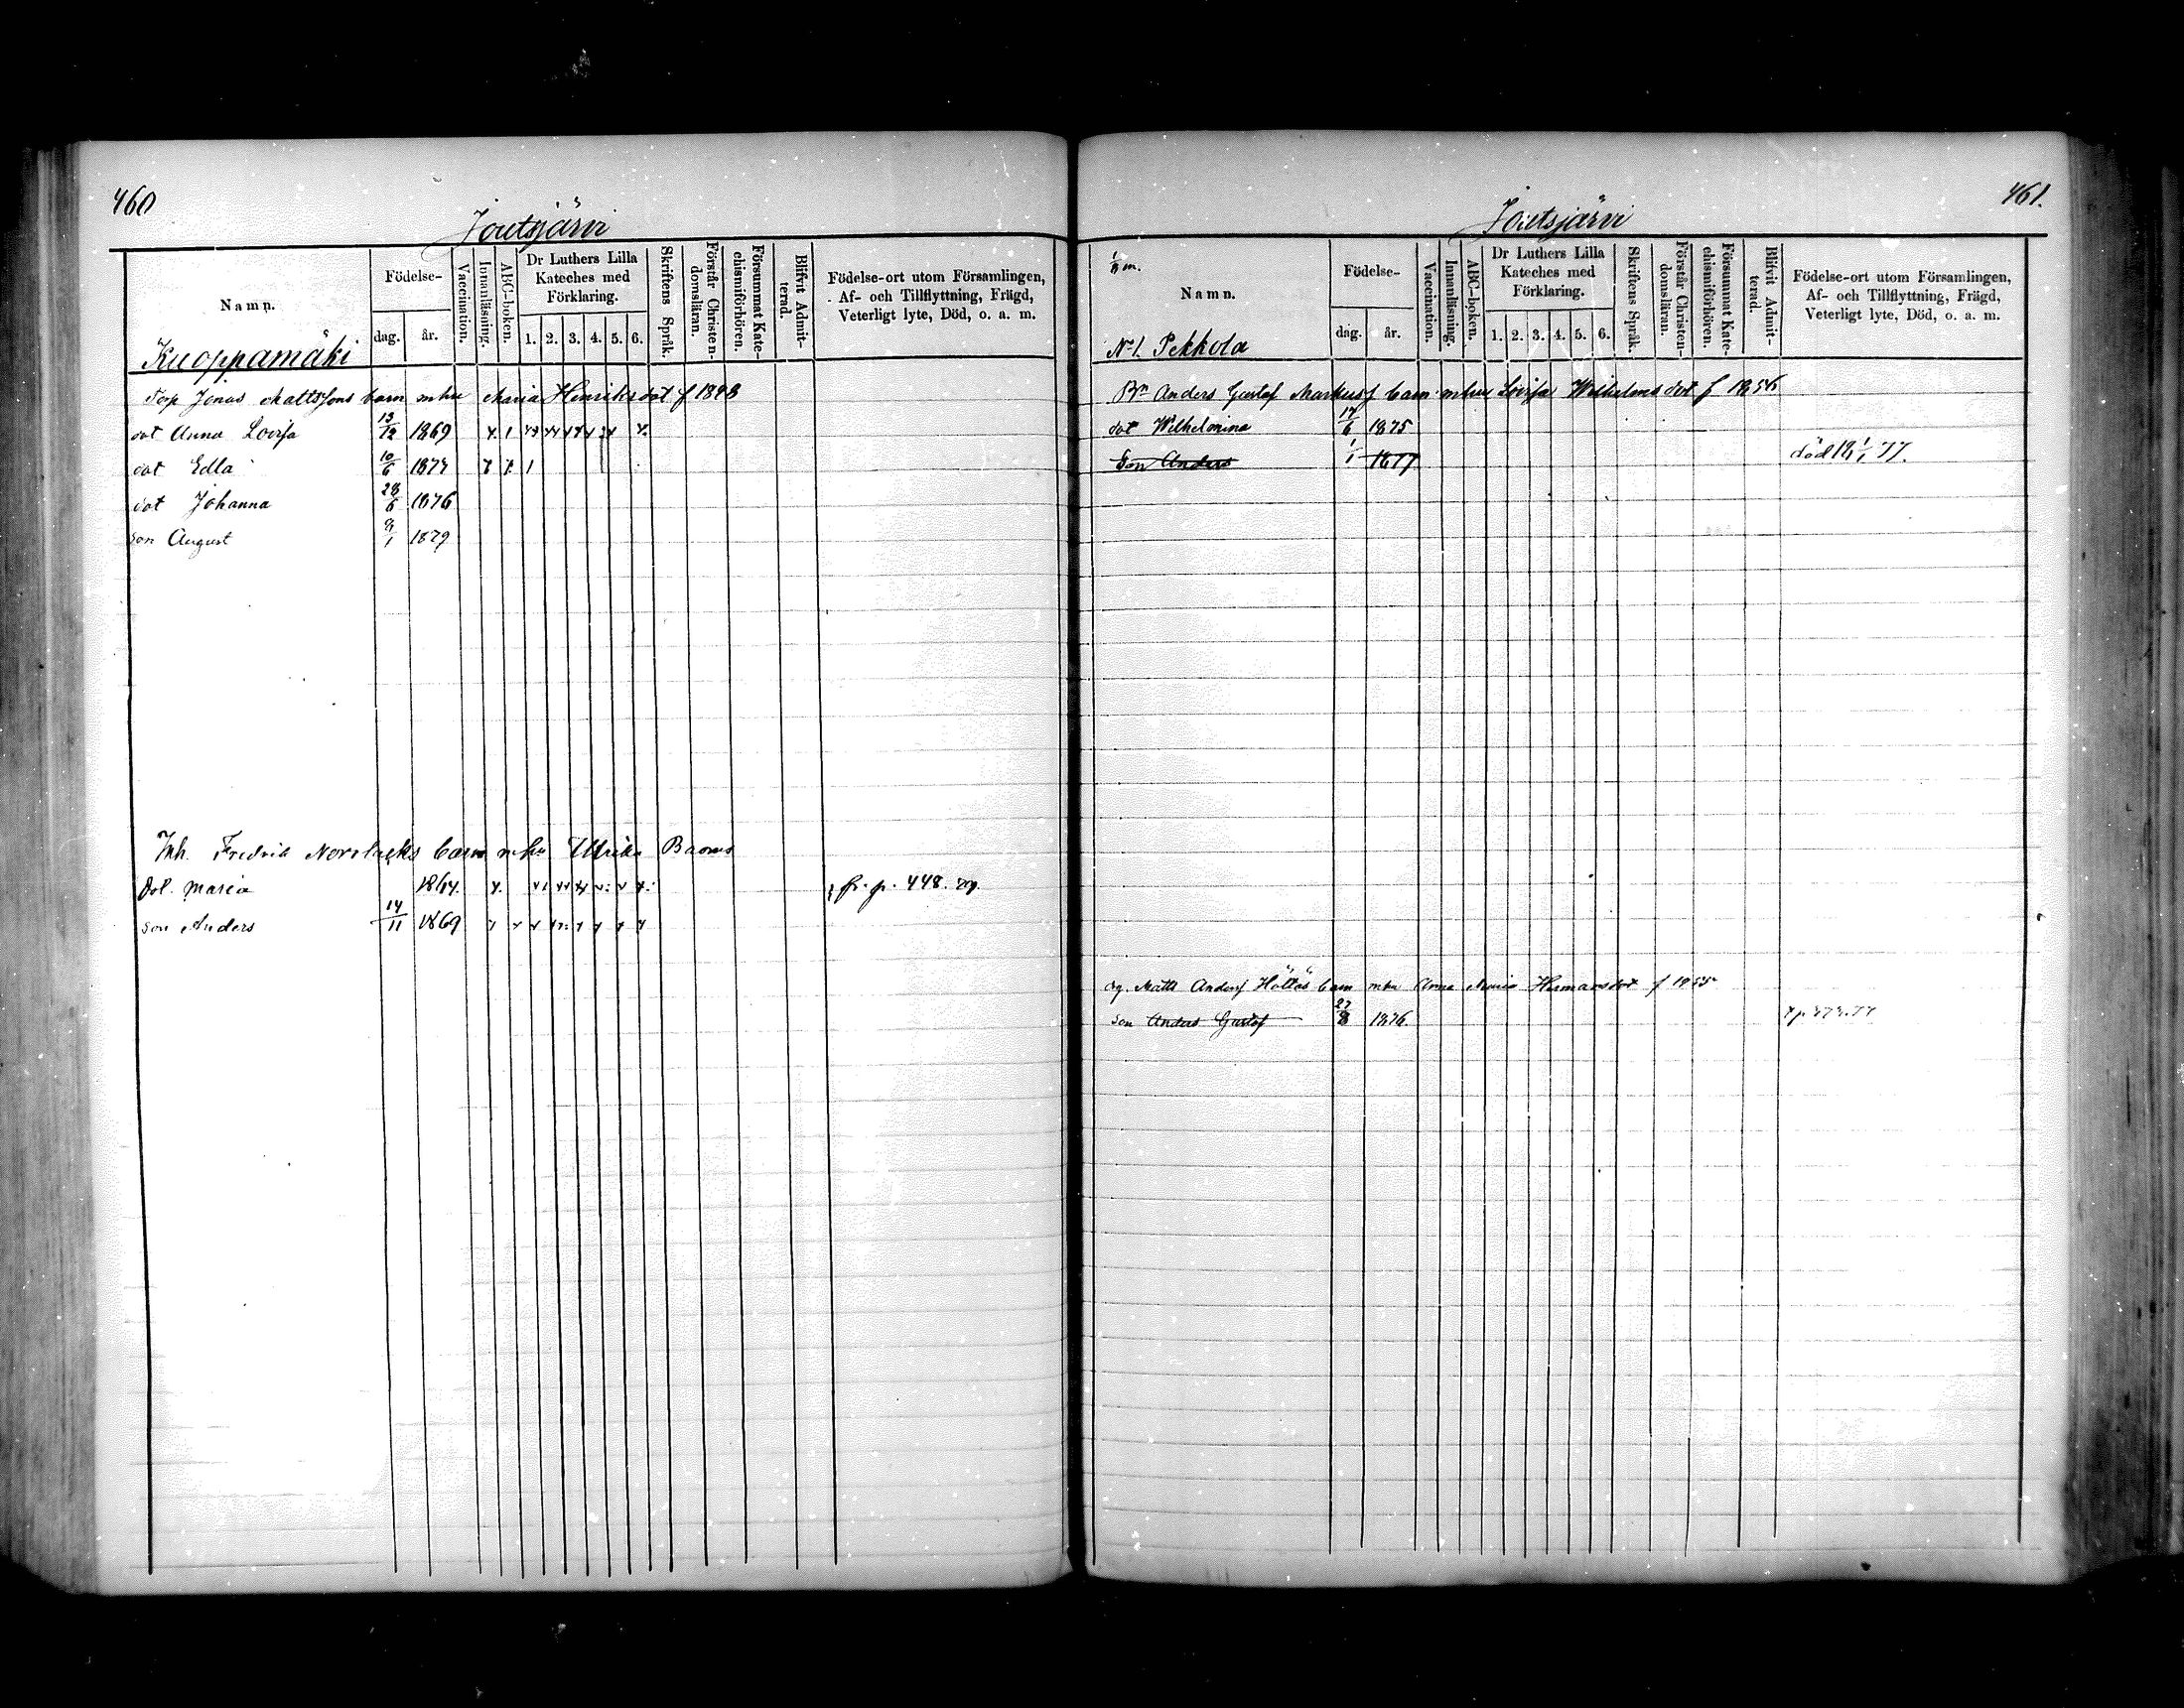 460
Joutsjärvi
Namn.
Födelse-
dag. år.
Vaccination.
Innanläsning.
ABC-boken.
Dr Luthers Lilla Kateches med Förklaring.
1. 2. 3. 4. 5. 6.
Skriftens Språk.
Förstår Christendomsläran.
Försummat Katechismiförhören.
Blifvit Admitterad.
Födelse-ort utom Församlingen,
Af- och Tillflyttning, Frägd,
Veterligt lyte, Död, o. a. m.
Kuoppamäki
Torp Jonas Mattssons barn mhu Maria Henriksdot f 1848
dot Anna Lovisa 13/12 1869
dot Edla 10/6 1874
dot Johanna 28/6 1876
son August 9/1 1879
Inh. Fredrik barn mhu Ulrika
Dot. Maria 1864. fr. p. 448.
son Anders 14/11 1869
461.
Joutsjärvi
1/8 m.
Namn.
Födelse-
dag. år.
Vaccination.
Innanläsning.
ABC-boken.
Dr Luthers Lilla Kateches med Förklaring.
1. 2. 3. 4. 5. 6.
Skriftens Språk.
Förstår Christendomsläran.
Försummat Katechismiförhören.
Blifvit Admitterad.
Födelse-ort utom Församlingen,
Af- och Tillflyttning, Frägd,
Veterligt lyte, Död, o. a. m.
No 1. Pekkola
Bn Anders Gustaf Markusf barn mhu Lovisa Wilhelmsdot f 1856
dot Wilhelmina 17/6 1875
Son Anders 1/1 1877 död 18 1/1 77.
Matts Andersf barn mhu Anna Maria Hermansdot f 1855
son Anders Gustaf 27/8 1876.